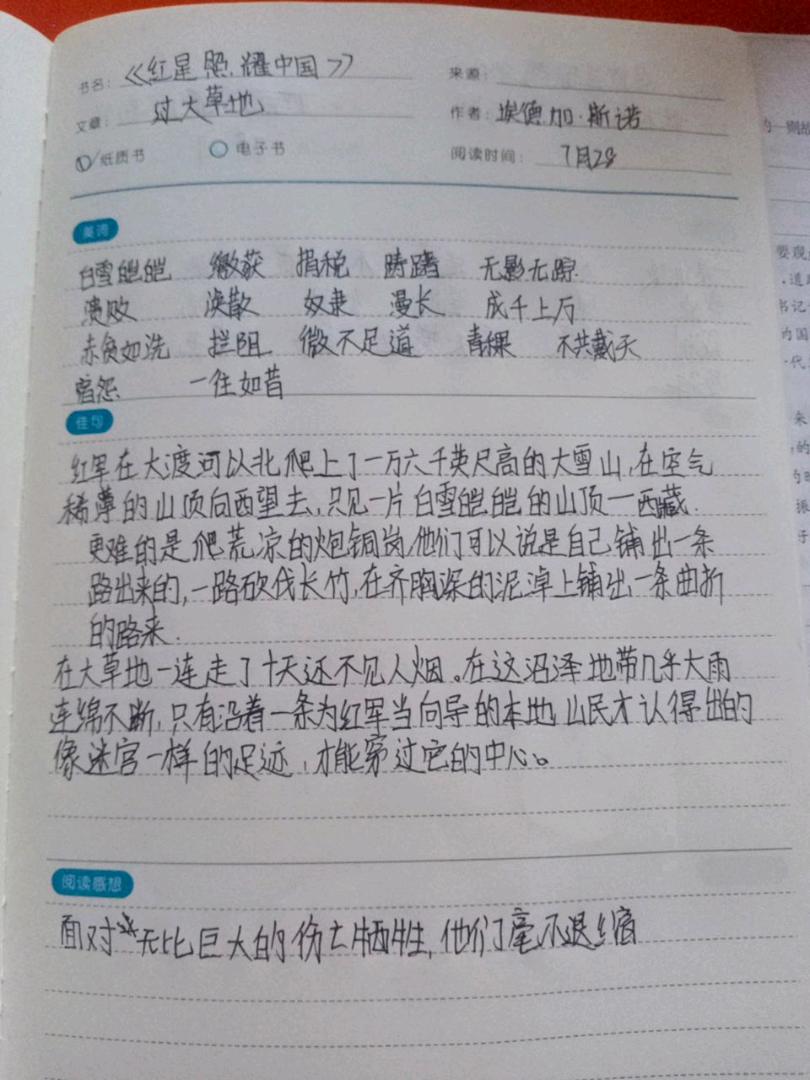 书名: 《红星照耀中国》 来源:
文章: 过大草地 作者: 埃德加·斯诺
纸质书 电子书 阅读时间: 7月28
美词
白雪皑皑 缴获 捐税 踌躇 无影无踪
溃败 涣散 奴隶 漫长 成千上万
赤贫如洗 拦阻 微不足道 青稞 不共戴天
宿怨 一往如昔
佳句
红军在大渡河以北爬上了一万六千英尺高的大雪山,在空气
稀薄的山顶向西望去,只见一片白雪皑皑的山顶一西藏.
更难的是爬荒凉的炮铜岗,他们可以说是自己铺出一条
路出来的,一路砍伐长竹,在齐胸深的泥淖上铺出一条曲折
的路来.
在大草地一连走了十天还不见人烟。在这沼泽地带几乎大雨
连绵不断,只有沿着一条为红军当向导的本地山民才认得出的
像迷宫一样的足迹,才能穿过它的中心。
阅读感想
面对 无比巨大的伤亡牺牲,他们毫不退缩